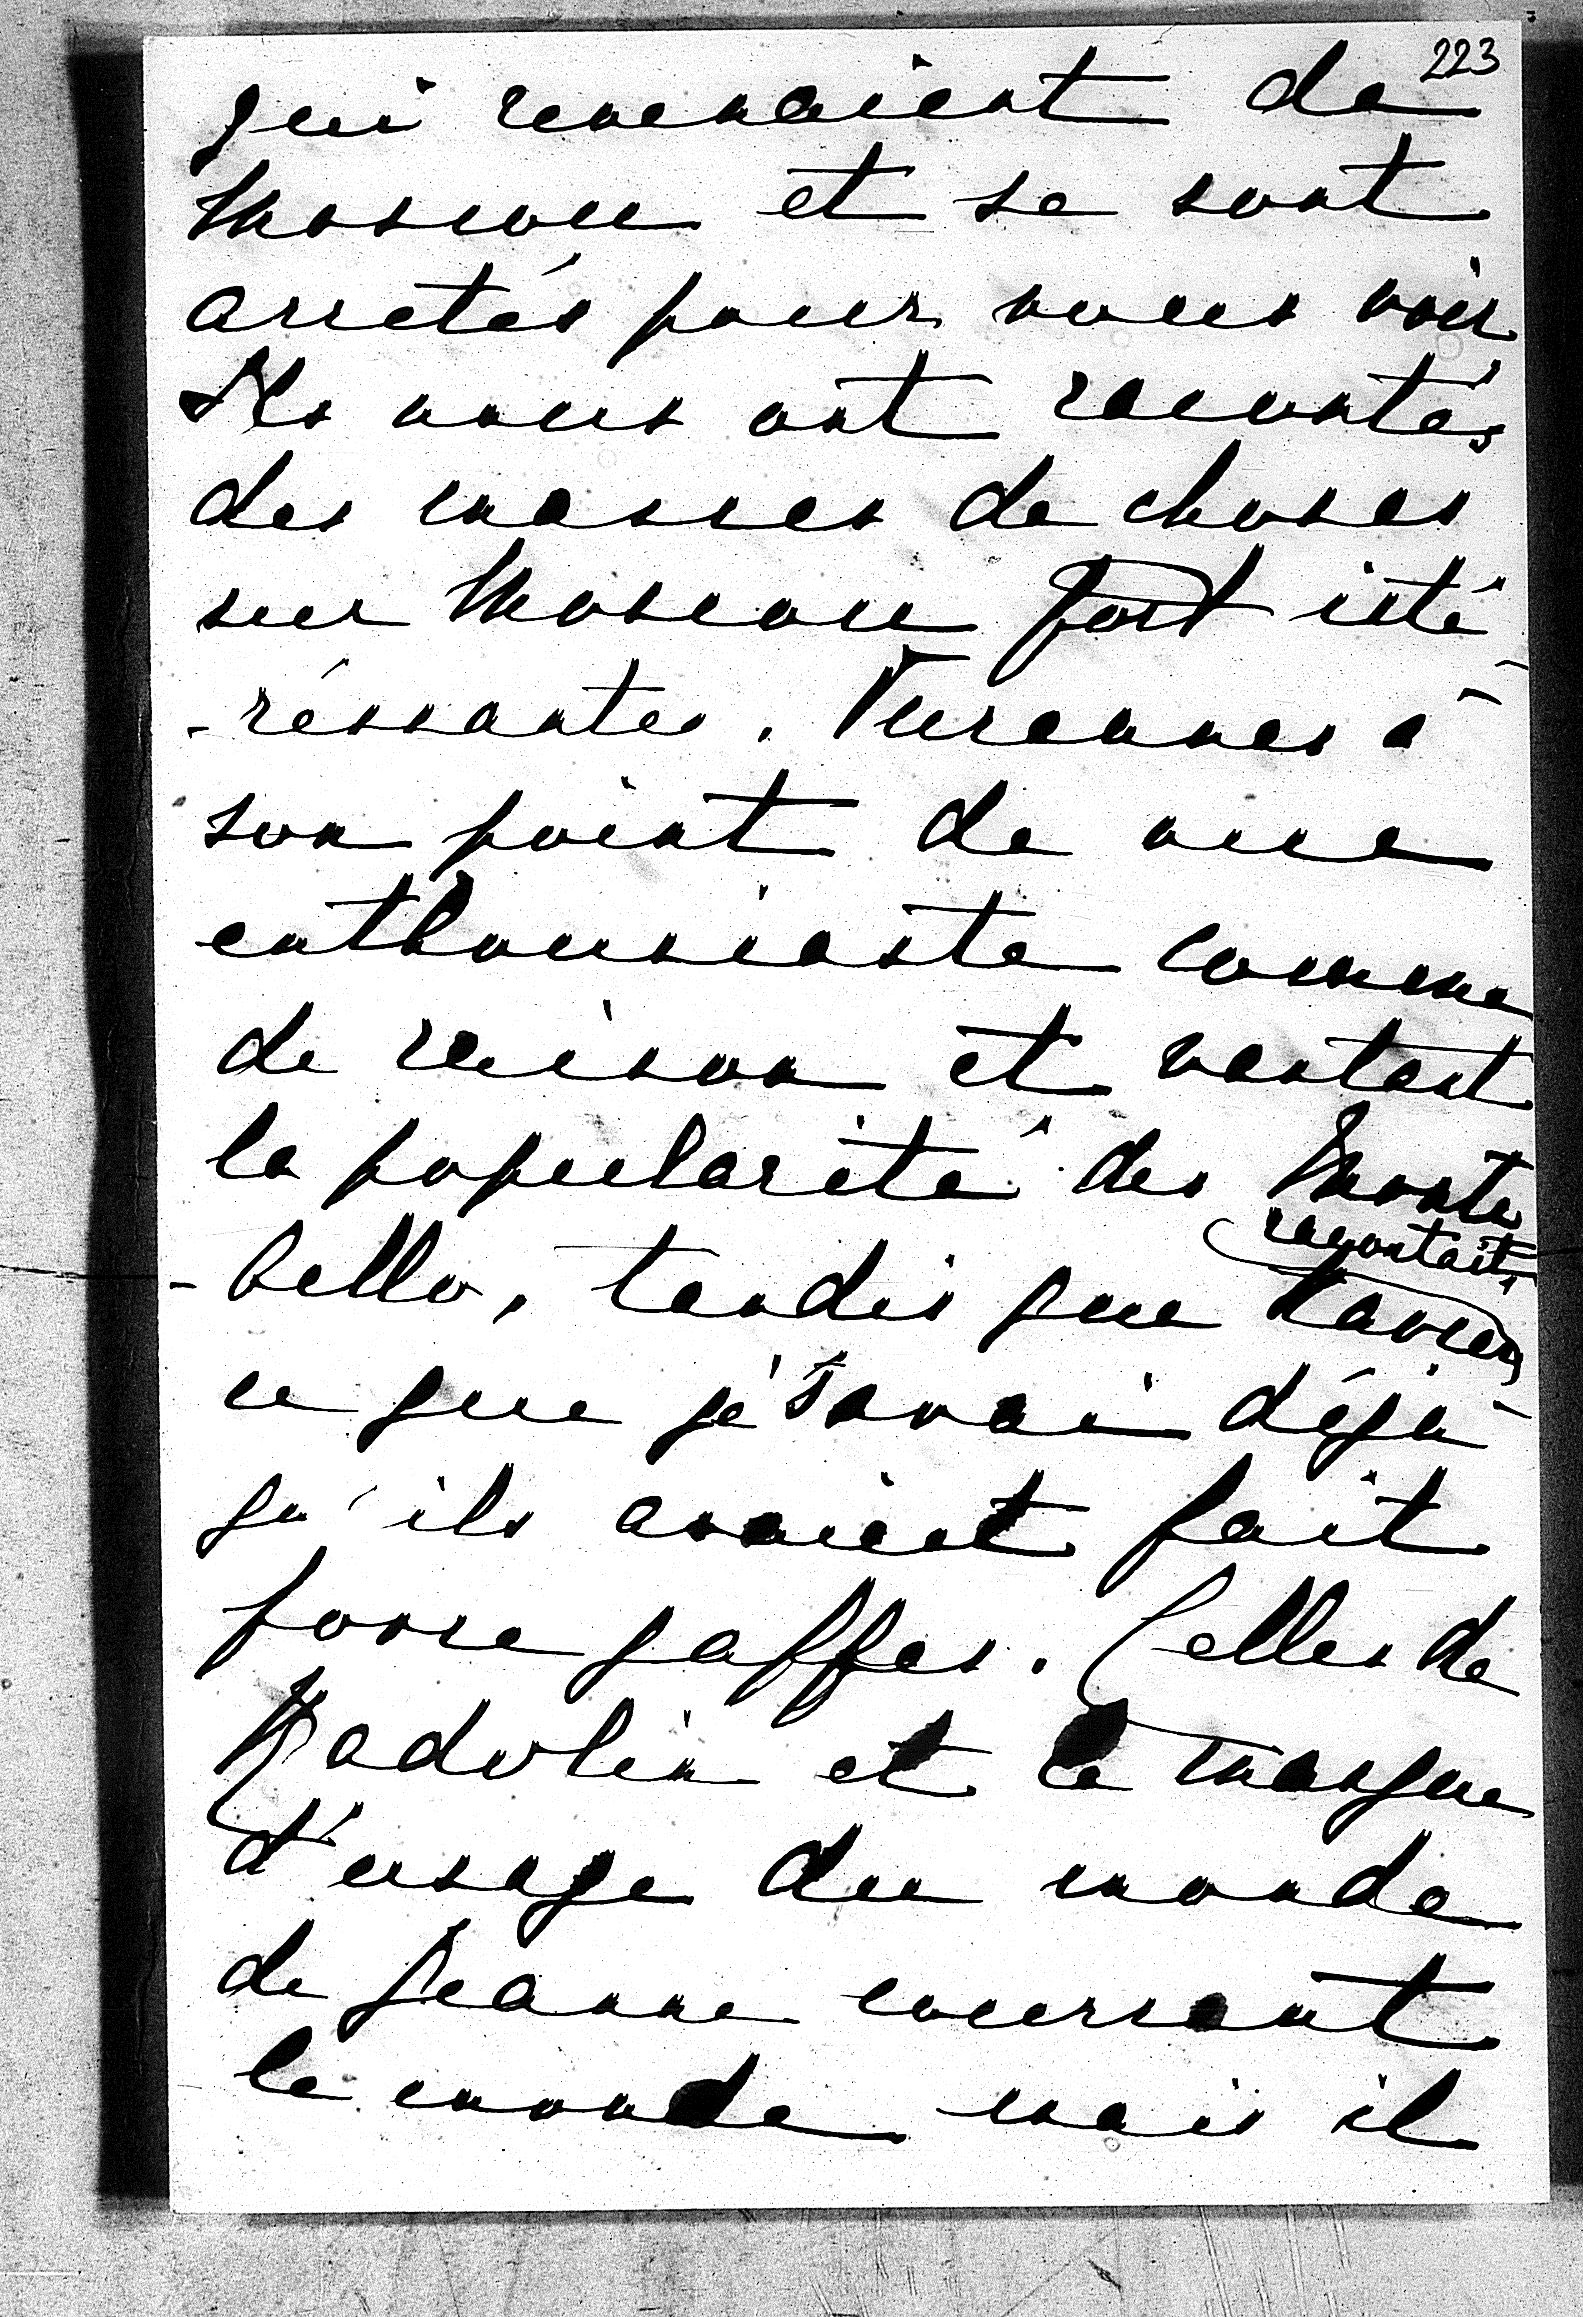 223
qui revenaient de
Moscou et se sont
arretés pour nous voir
Ils nous ont racontés
des masses de choses
sur Moscou fort inté
-réssantes. Turennes à
son point de vue
enthousiaste comme
de raison et vantant
la popularité des Monte
-bello, tandis que
racontait
ce que je savai déjà
qu'ils avaient fait
force gaffes. Celles de
Radolin et le manque
d'usage du monde
de Jeanne courrant
le monde mais il